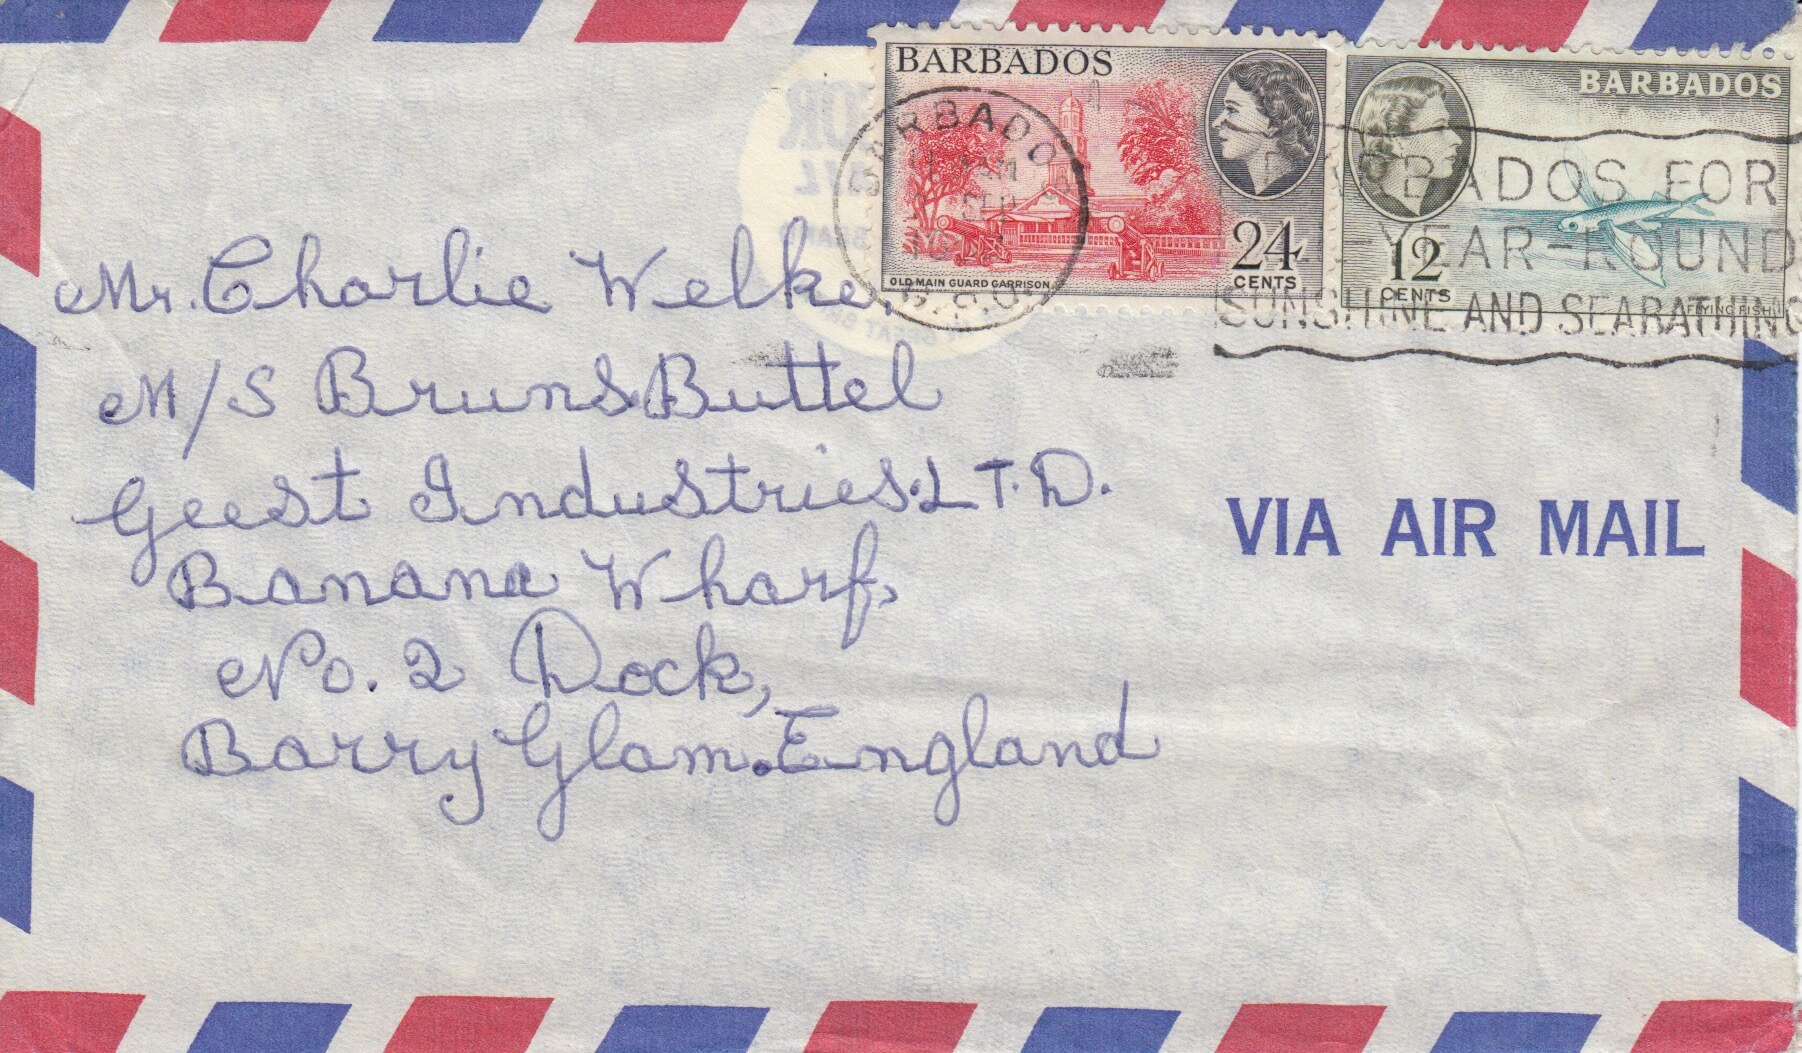 BARBADOS
24
CENTS
OLD MAIN GUARD GARRISON
BARBADOS
12
CENTS
FLYING FISH
BARBADOS
G.P.O.
BARBADOS FOR
YEAR-ROUND
SUNSHINE AND SEABATHING
Mr. Charlie Welke,
M/S BrunsButtel
Geest Industries. LT.D.
Banana Wharf,
No. 2 Dock,
Barry Glam. England
VIA AIR MAIL